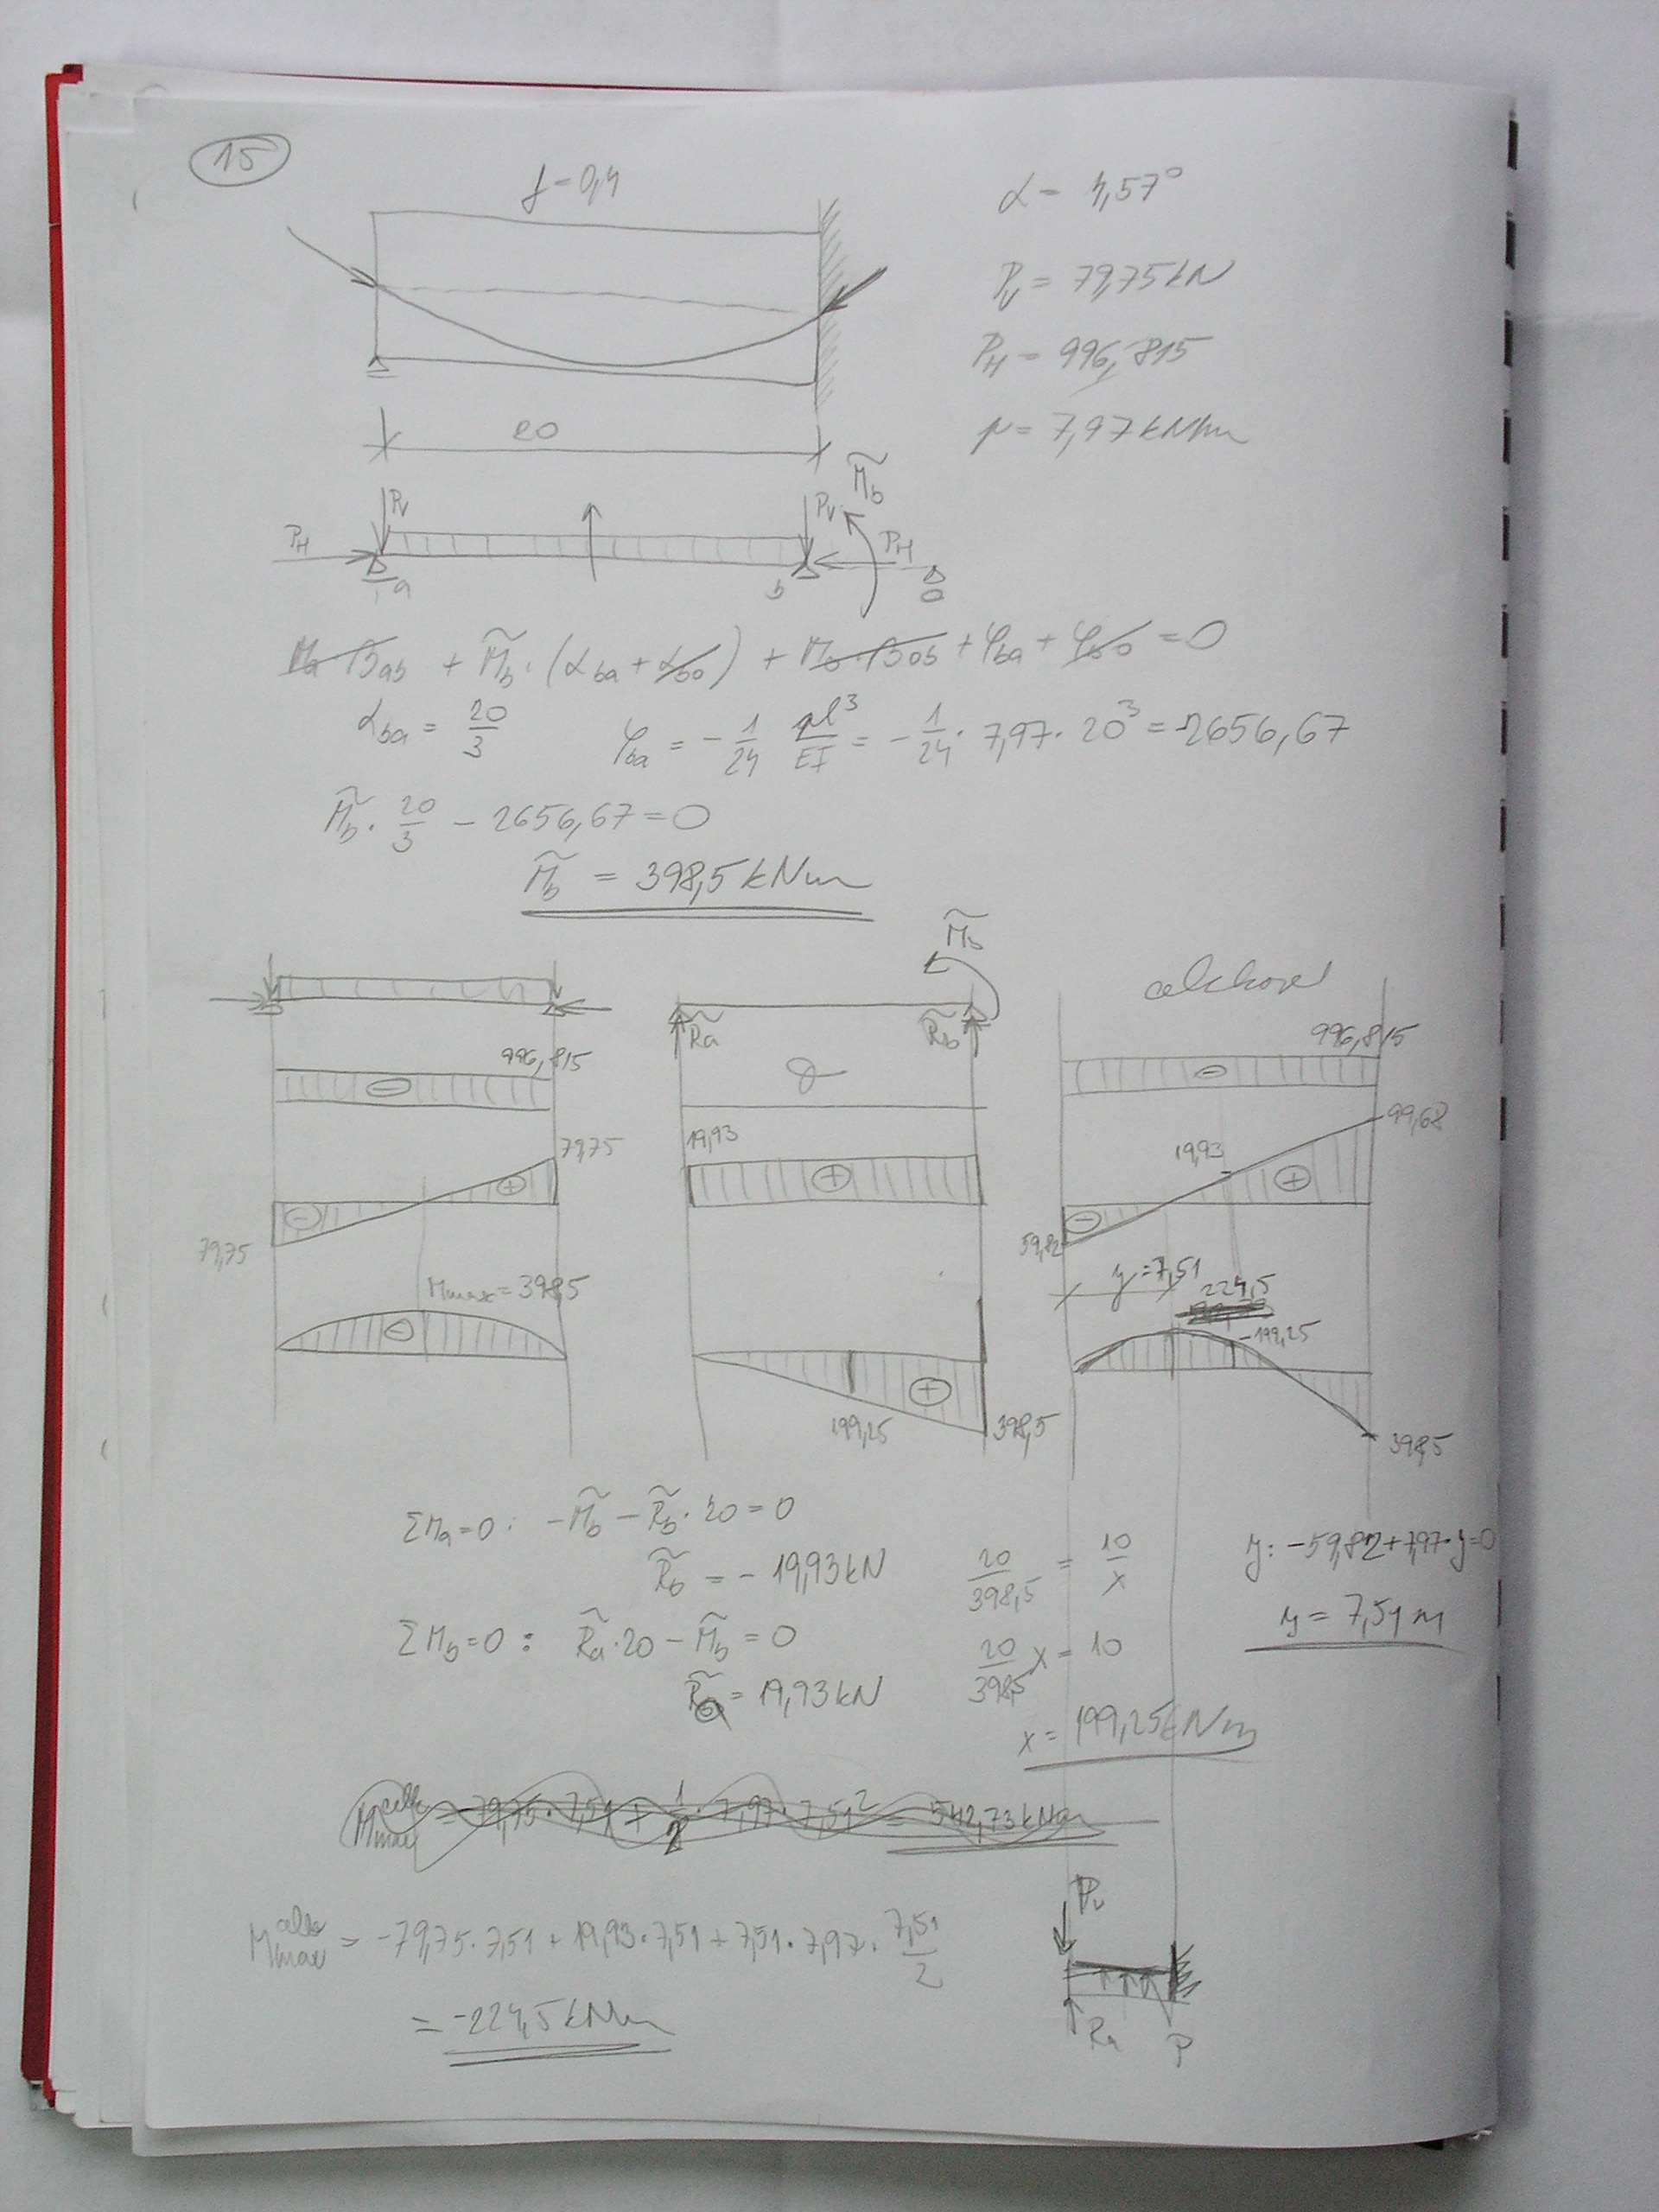 15
f=0,4
α = 4,57°
Pv = 79,75 kN
PH = 996,815
p = 7,97 kN/m
20
M̃b
Pv
Pv
PH
PH
a
b
o
Ma·βab + M̃b·(αba + αbo) + Mo·βob + φba + φbo = 0
αba = 20/3
φba = -1/24 pl³/EI = -1/24 · 7,97 · 20³ = -2656,67
M̃b · 20/3 - 2656,67 = 0
M̃b = 398,5 kNm
M̃b
R̃a
R̃b
celkové
996,815
996,815
79,75
79,75
19,93
99,68
19,93
59,82
y = 7,51
Mmax = 398,5
224,5
-199,25
199,25
398,5
398,5
ΣMa=0: -M̃b - R̃b·20 = 0
R̃b = -19,93 kN
ΣMb=0: R̃a·20 - M̃b = 0
R̃a = 19,93 kN
20/398,5 = 10/x
20/398,5 x = 10
x = 199,25 kNm
y: -59,82+7,97·y=0
y = 7,51 m
Mmax celk = -79,75·7,51 + 1/2 · 7,97·7,51² = 542,73 kNm
Mmax celk = -79,75·7,51 + 19,93·7,51 + 7,51·7,97· 7,51/2
= -224,5 kNm
Pv
Ra
P